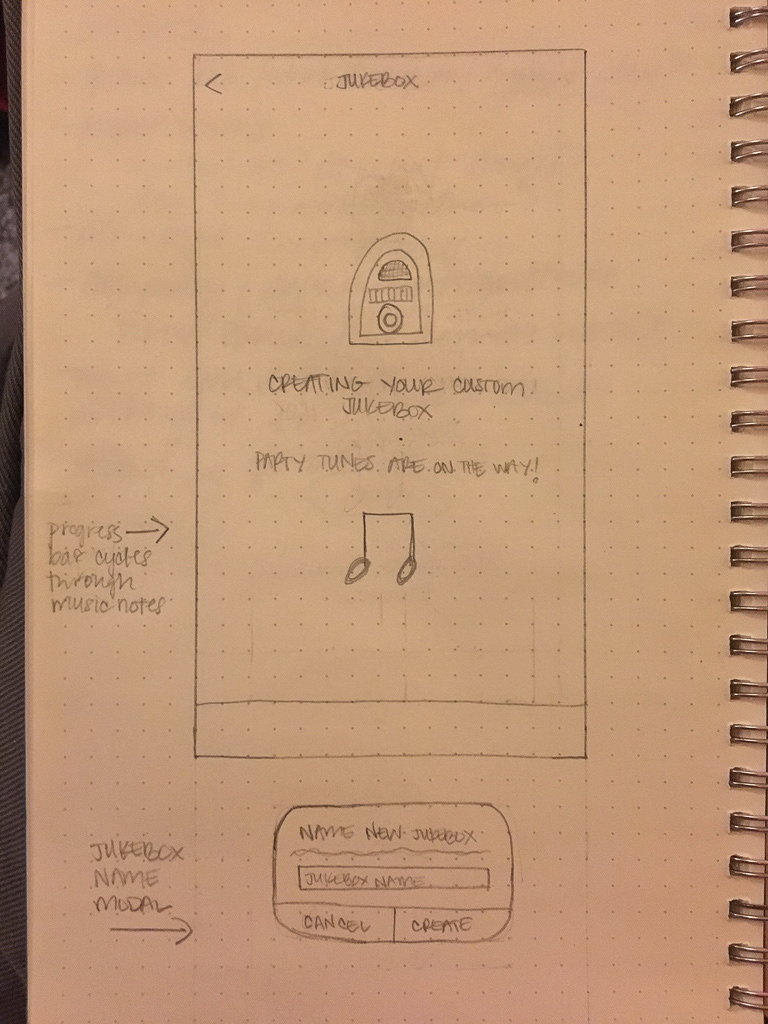 < JUKEBOX
CREATING YOUR CUSTOM
JUKEBOX
PARTY TUNES ARE ON THE WAY!
progress
bar cycles
through
music notes
JUKEBOX
NAME
MODAL
NAME NEW JUKEBOX
JUKEBOX NAME
CANCEL CREATE